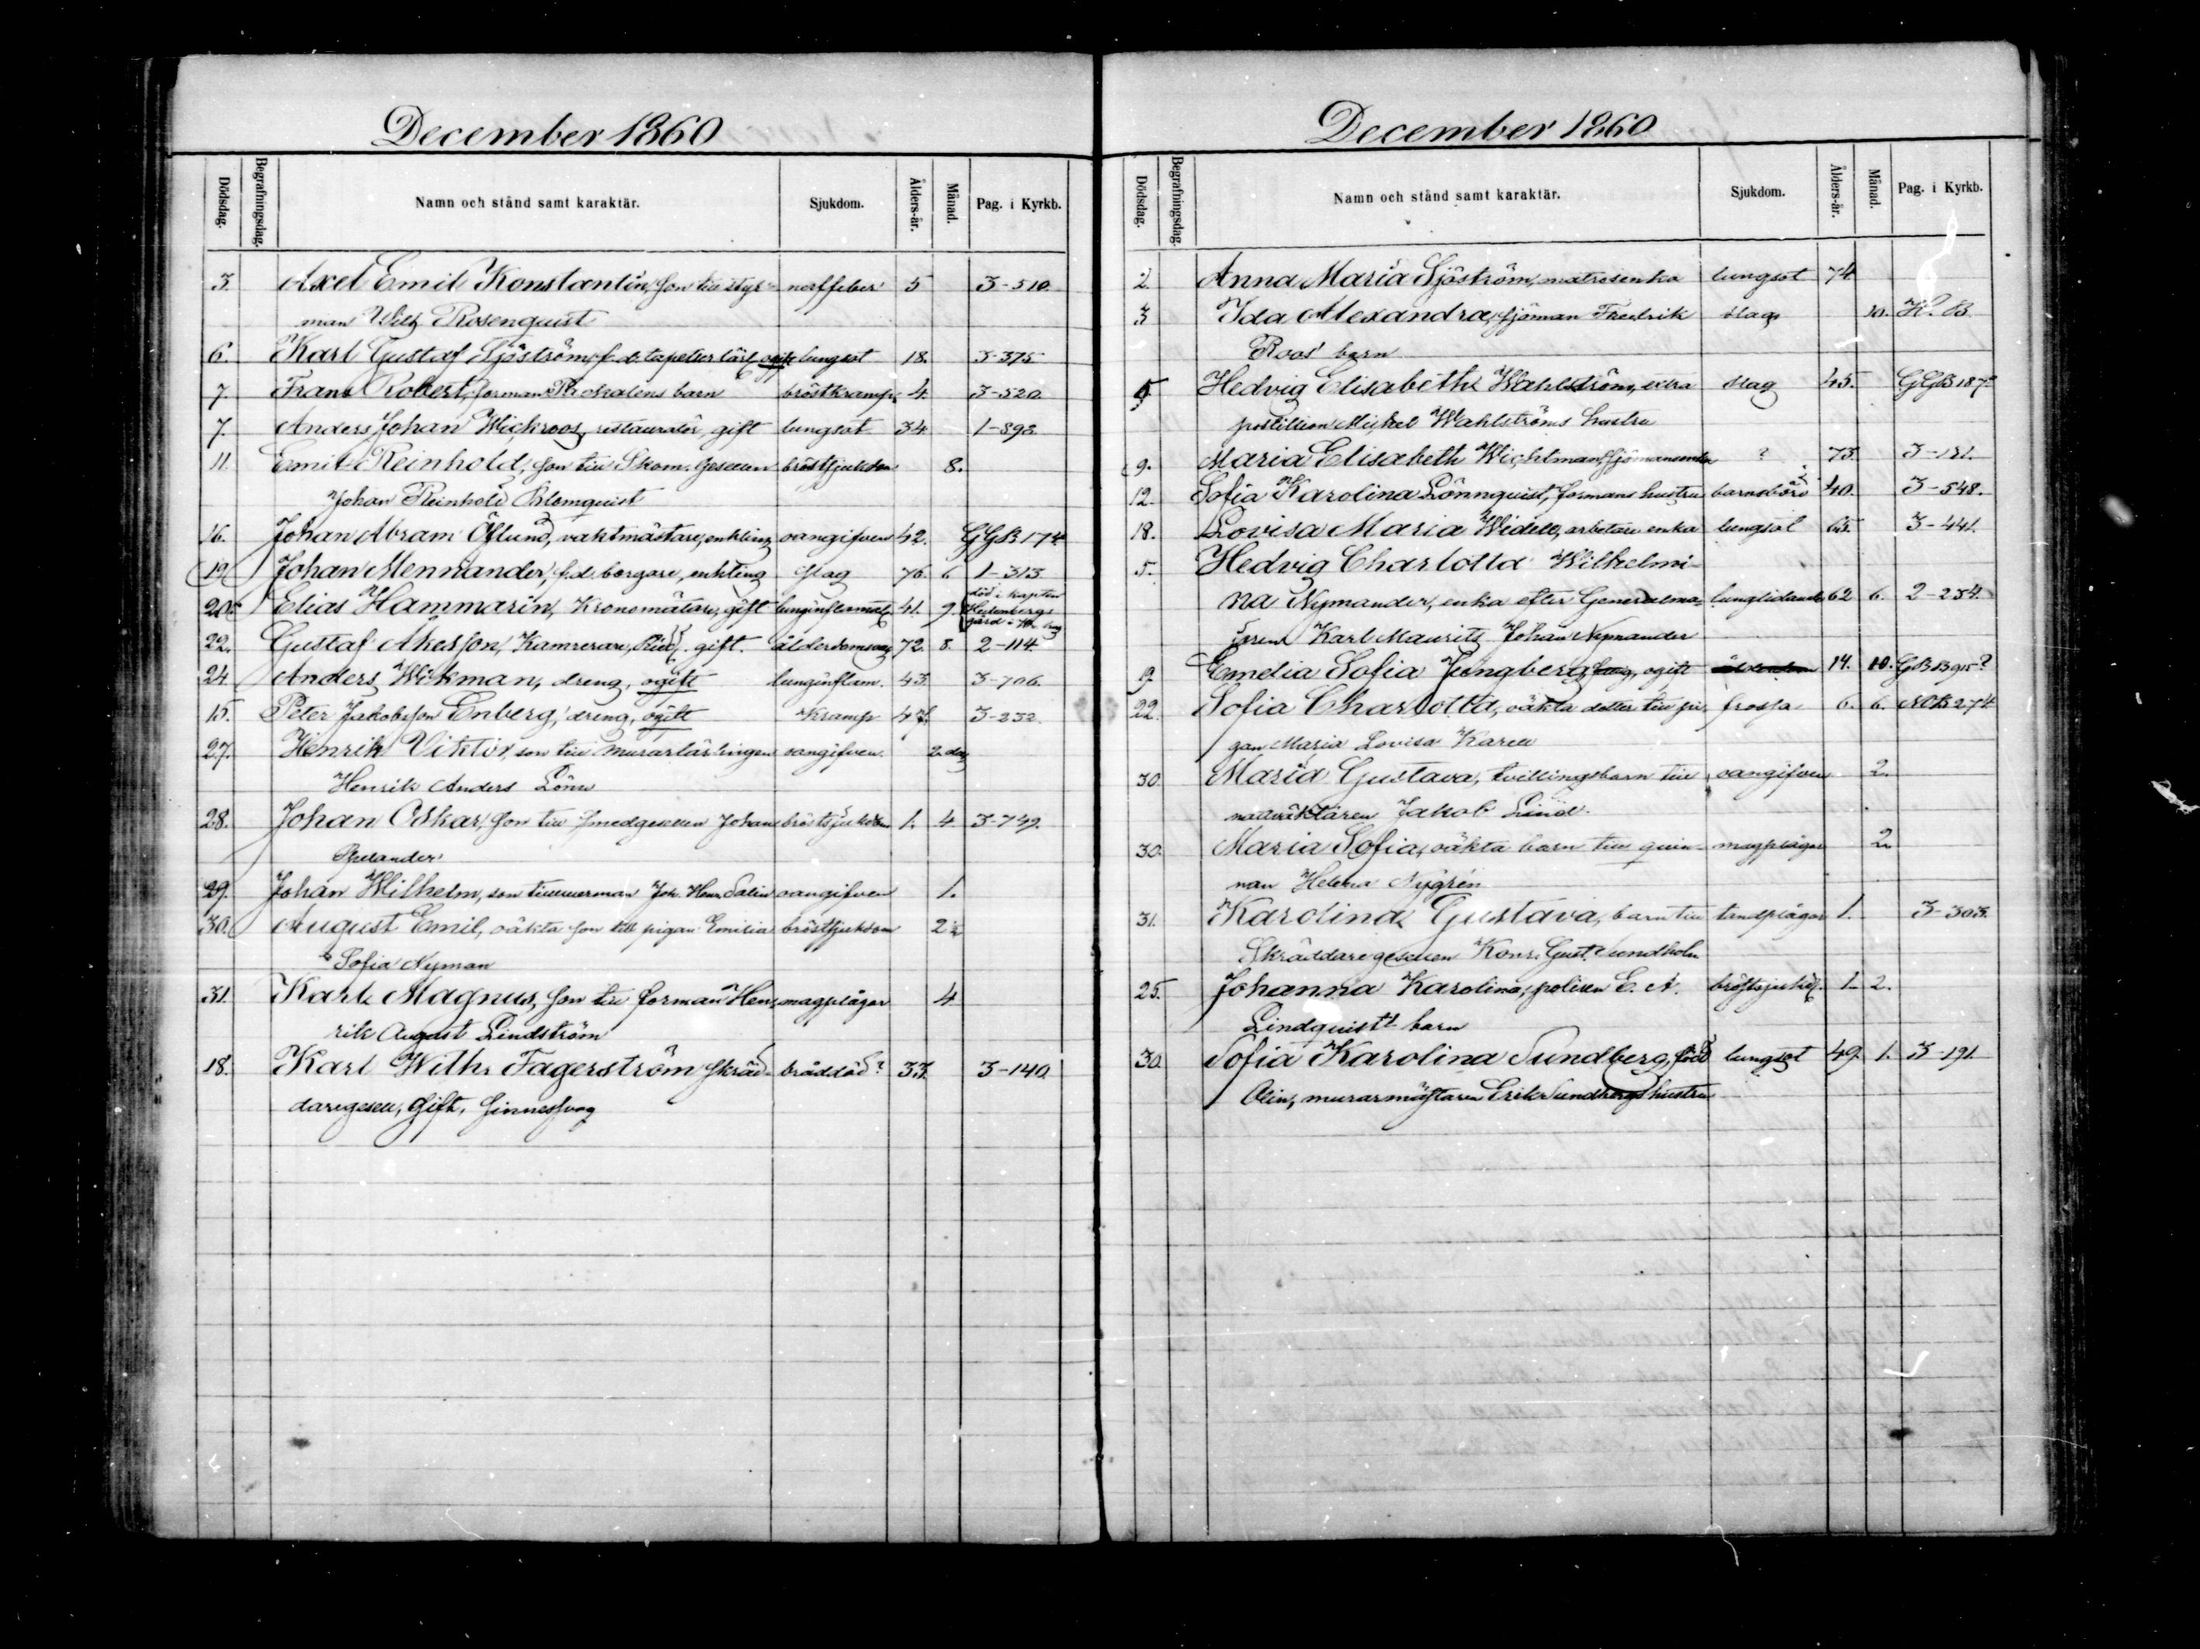 December 1860
Dödsdag. Begrafningsdag. Namn och stånd samt karaktär. Sjukdom. Ålders-år. Månad. Pag. i Kyrkb.
3. Axel Emil Konstantin, son till styr- nerffeber 5 3-510.
man Wilh Rosenquist
6. Karl Gustaf Sjöström, f.d. tapetserlärl. ogift lungsot 18. 3-375
7. Frans Robert, forman barn bröstkramp 4. 3-520
7. Anders Johan Wickroos, restauratör, gift lungsot 34 1-393
11. Emil Reinhold, son till Skom. gesällen bröstsjukdom 8.
Johan Reinhold Blomquist
16. Johan Abram Öflund, vaktmästare, enkling oangifven 42. GGB 174
19. Johan Mennander, f.d. borgare, enkling slag 76. 6 1-313
20. Elias Hammarin, Kronomätare, gift lunginflammat. 41. 9 död i kapten
gård
22. Gustaf Åkesson, Kamrerare, gift. ålderdomsvag 72. 8. 2-114
24 Anders Wikman, dreng, ogift lunginflam. 43. 3-706.
15. Peter Jakobsson Enberg, dreng, ogift Kramp 47. 3-232.
27. Henrik Viktor, son till murarlärlingen oangifven. 2 dag
Henrik Anders Lönn
28. Johan Oskar, son till smedgesällen Johan bröstsjukdom 1. 4 3-749.
Spelander
29. Johan Wilhelm, son till timmerman Joh. Henr. Salin oangifven 1.
30. August Emil, oäkta son till pigan Emilia bröstsjukdom 2½
Sofia Nyman
31. Karl Magnus, son till forman Hen- magplågor 4
rik August Lindström
18. Karl Wilh. Fagerström skräd- bråddöd? 33. 3-140.
daregesell, gift, sinnessvag
December 1860
Dödsdag. Begrafningsdag. Namn och stånd samt karaktär. Sjukdom. Ålders-år. Månad. Pag. i Kyrkb.
2. Anna Maria Sjöström, matrosenka lungsot 74
3 Ida Alexandra, sjöman Fredrik slag 10. K. B.
Roos' barn
5 Hedvig Elisabeth Wahlström, extra slag 45. GGB 187
postillion Mickel Wahlströms hustru
9. Maria Elisabeth Wichtman, sjömansenka ? 73. 3-181.
12. Sofia Karolina Lönnquist, formans hustru barnsbörd 40. 3-548.
18. Lovisa Maria Widell, arbetare enka lungsot 65. 3-441.
5. Hedvig Charlotta Wilhelmi-
na Nymander, enka efter Generalma- lunglidande 62 6. 2-254.
joren Karl Maurits Johan Nymander
9. Emelia Sofia Ljungberg, ogift 14. 10. GBB 915?
22. Sofia Charlotta, oäkta dotter till pi- frossa 6. 6. NKB 274
gan Maria Lovisa Karell
30. Maria Gustava, tvillingsbarn till oangifven 2.
nattväktaren Jakob Lind.
30. Maria Sofia, oäkta barn till quin- magplågor 2.
nan Helena Nygrén
31. Karolina Gustava, barn till tandplågor 1. 3-303.
Skräddaregesellen Konr. Gust. Sundholm
25. Johanna Karolina, polisen E. A. bröstsjukd. 1. 2.
Lindquists barn
30. Sofia Karolina Sundberg, född lungsot 49. 1. 3-191.
Olin, murarmästaren Erik Sundbergs hustru